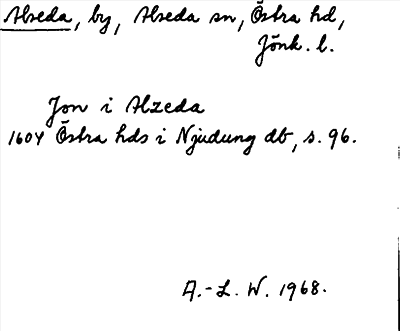 Alseda, by, Alseda sn, Östra hd,
Jönk. l.
Jon i Alzeda
1604 Östra hds i Njudung db, s. 96.
A.-L. W. 1968.